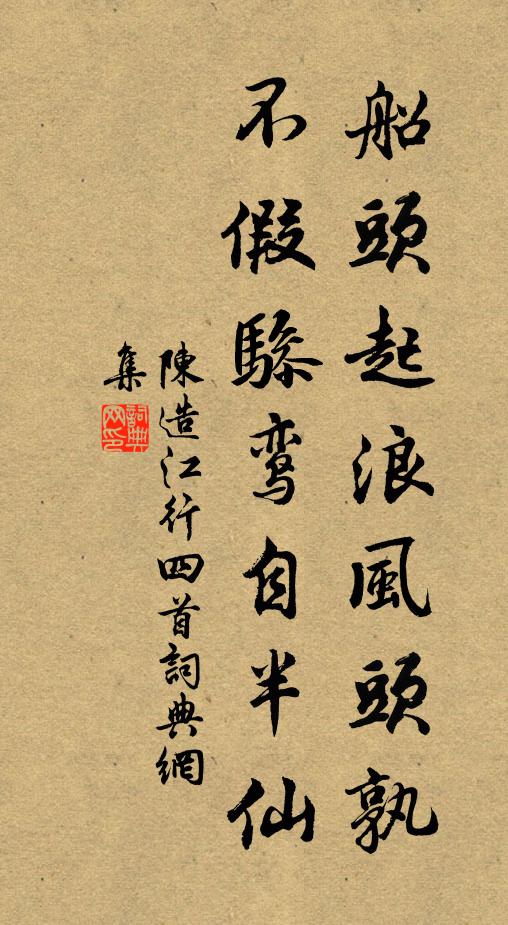 船頭起浪風頭孰
不假驂鸾自半仙
陳造江行四首詞典網
集
詞典网印